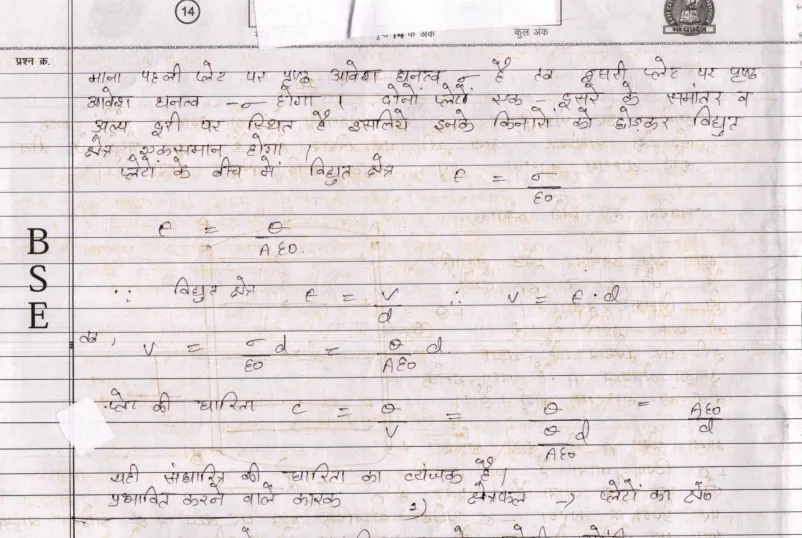 14
14 के अंक
कुल अंक
मध्यप्रदेश
प्रश्न क्र.
माना पहली प्लेट पर पृष्ठ आवेश घनत्व σ है तब दूसरी प्लेट पर पृष्ठ
आवेश घनत्व -σ होगा । दोनों प्लेटें एक - दूसरे के समांतर व
अल्प दूरी पर स्थित है इसलिये इनके किनारों को छोड़कर विद्युत
क्षेत्र एकसमान होगा ।
प्लेटों के बीच में विद्युत क्षेत्र E = σ / ε0
E = Q / Aε0.
BSE
∵ विद्युत क्षेत्र E = V / d ∴ V = E·d
तब, V = σ / ε0 d = Q / Aε0 d.
प्लेट की धारिता C = Q / V = Q / (Q / Aε0 d) = Aε0 / d
यही संधारित्र की धारिता का व्यंजक है ।
प्रभावित करने वाले कारक 1) क्षेत्रफल → प्लेटों का क्षे०